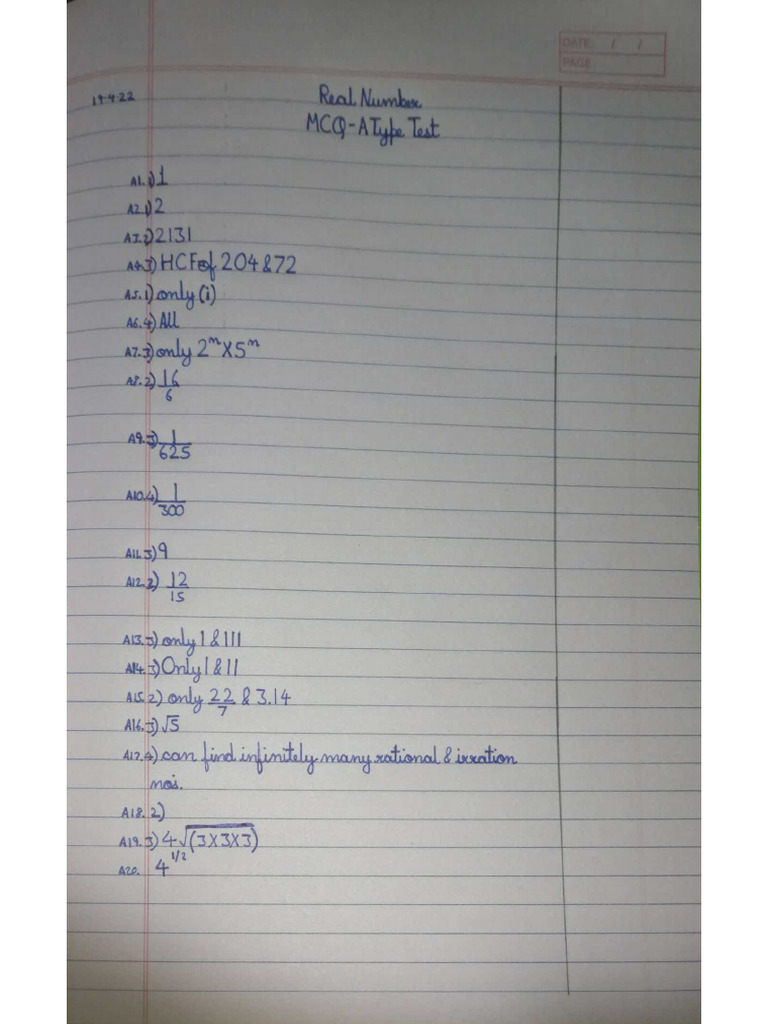 DATE: / /
PAGE:
19-4-22
Real Number
MCQ-A Type Test
A1. 1) 1
A2. 1) 2
A3. 2) 2131
A4. 3) HCF of 204 & 72
A5. 1) only (i)
A6. 4) All
A7. 3) only 2ᵐ X 5ⁿ
A8. 2) 16/6
A9. 3) 1/625
A10. 4) 1/300
A11. 3) 9
A12. 2) 12/15
A13. 3) only I & III
A14. 3) Only I & II
A15. 2) only 22/7 & 3.14
A16. 3) √5
A17. 4) can find infinitely many rational & irration
no's.
A18. 2)
A19. 3) 4√(3X3X3)
A20. 4^1/2